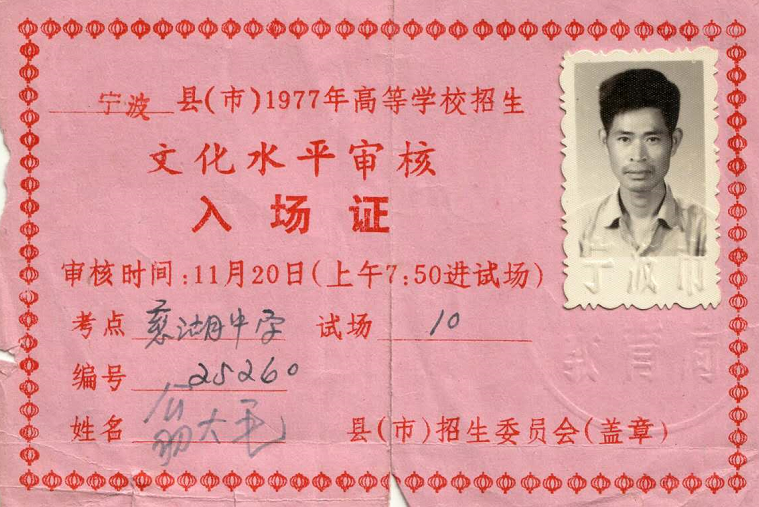 宁波 县(市)1977年高等学校招生
文化水平审核
入场证
审核时间:11月20日(上午7:50进试场)
考点 慈湖中学 试场 10
编号 25260
姓名 翁大毛
县(市)招生委员会(盖章)